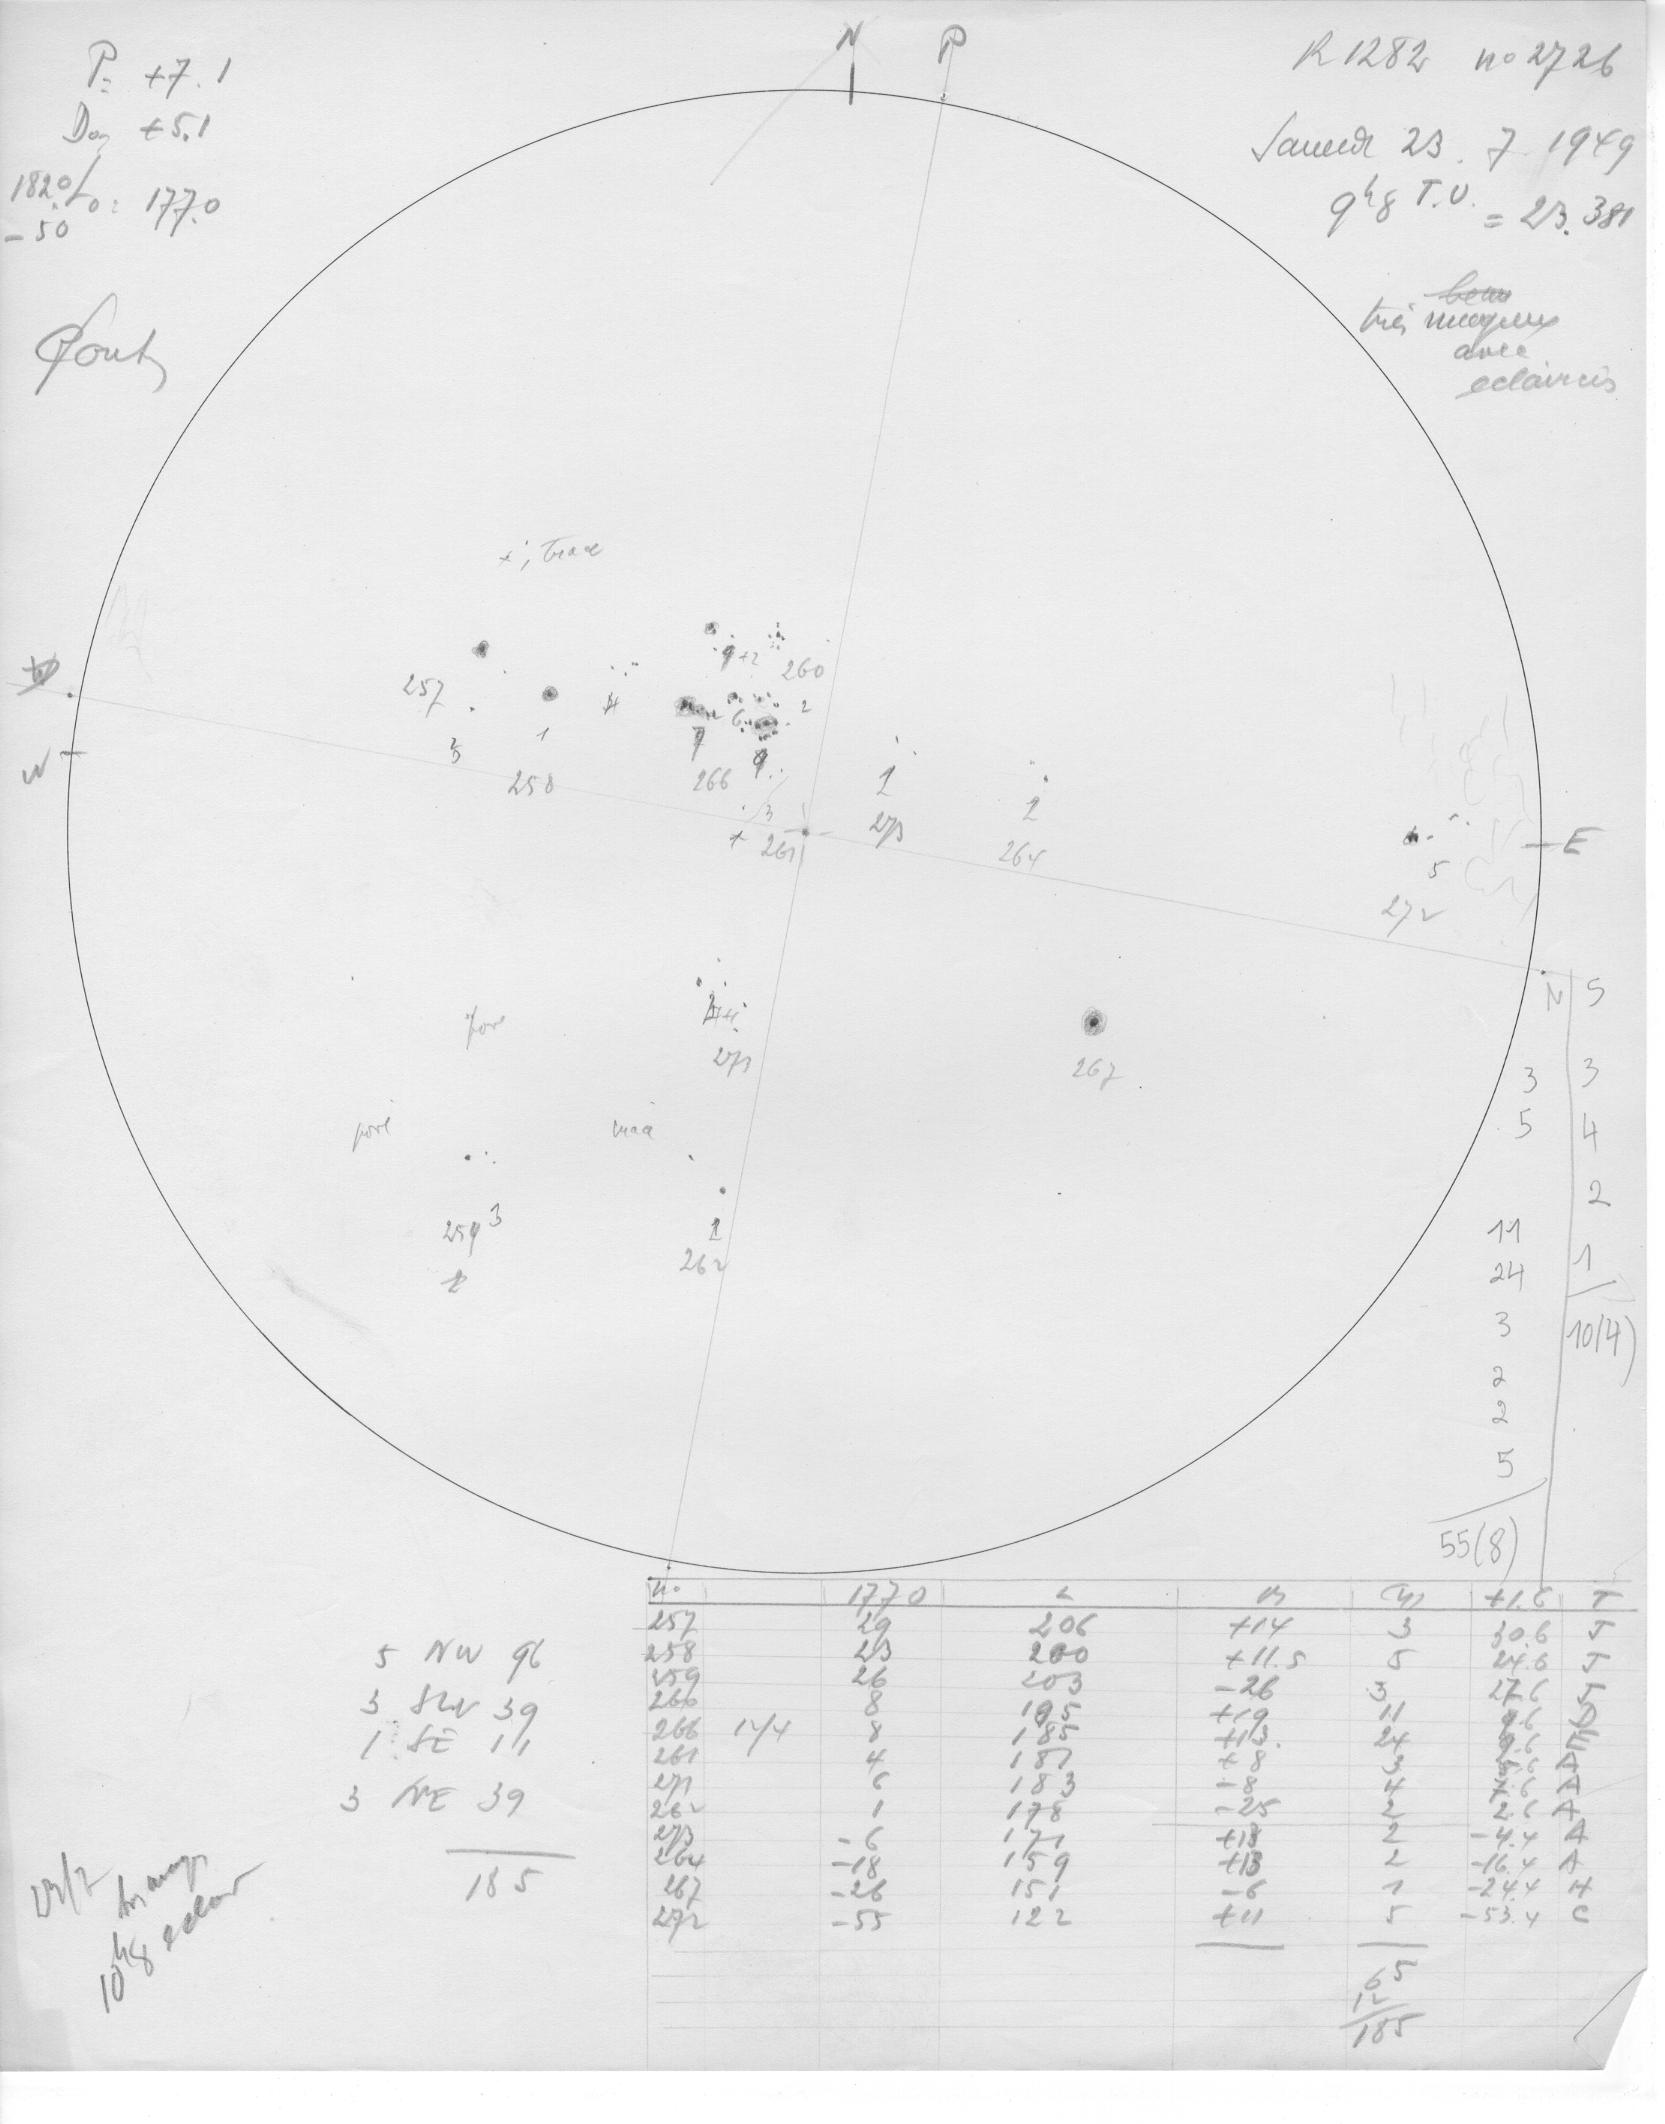 P= +7.1
D0= +5.1
182.0
-50
L0= 177.0
N
P
R 1282 no 2726
Samedi 23. 7. 1949
9h8 T.U. = 23.381
très nuageux
avec
eclaircis
+; trace
257
3
1
258
4
9+2
260
7
266
6
2
9
3
261
2
273
2
264
W
E
5
272
pore
4+1
271
267
pore
259
3
2
262
N S
3 3
5 4
2
11
24 1
3 10(4)
2
2
5
55(8)
no 1770 L B +1.6 T
257 29 206 +14 3 30.6 J
258 23 200 +11.5 5 24.6 J
259 26 203 -26 3 27.6 J
260 8 185 +19 11 9.6 D
266 8 185 +13. 24 9.6 E
261 4 181 +8 3 5.6 A
271 6 183 -8 4 7.6 A
262 1 178 -25 2 2.6 A
273 -6 171 +13 2 -4.4 A
264 -18 159 +13 2 -16.4 A
267 -26 151 -6 1 -24.4 H
272 -55 122 +11 5 -53.4 C
65
12
185
5 NW 96
3 SW 39
1 SE 11
3 NE 39
185
10h8